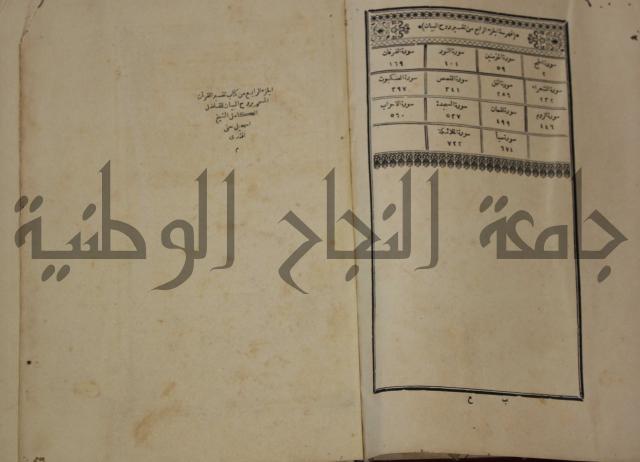 ﴿فهرسة الجزء الرابع من تفسير روح البيان﴾
سورة الحج سورة المؤمنين سورة النور سورة الفرقان
٢ ٥٩ ١٠٤ ١٦٩
سورة الشعراء سورة النمل سورة القصص سورة العنكبوت
٢٣٢ ٢٥٦ ٣٤١ ٣٩٧
سورة الروم سورة لقمان سورة السجدة سورة الاحزاب
٤٤٦ ٤٩٩ ٥٣٧ ٥٦٠
سورة سبأ سورة الملائكة
٦٧٤ ٧٢٢
ب ع
الجزء الرابع من كتاب تفسير القرآن
المسمى بروح البيان للفاضل
الكامل الشيخ
اسمعيل حقى
افندى
م
جامعة النجاح الوطنية